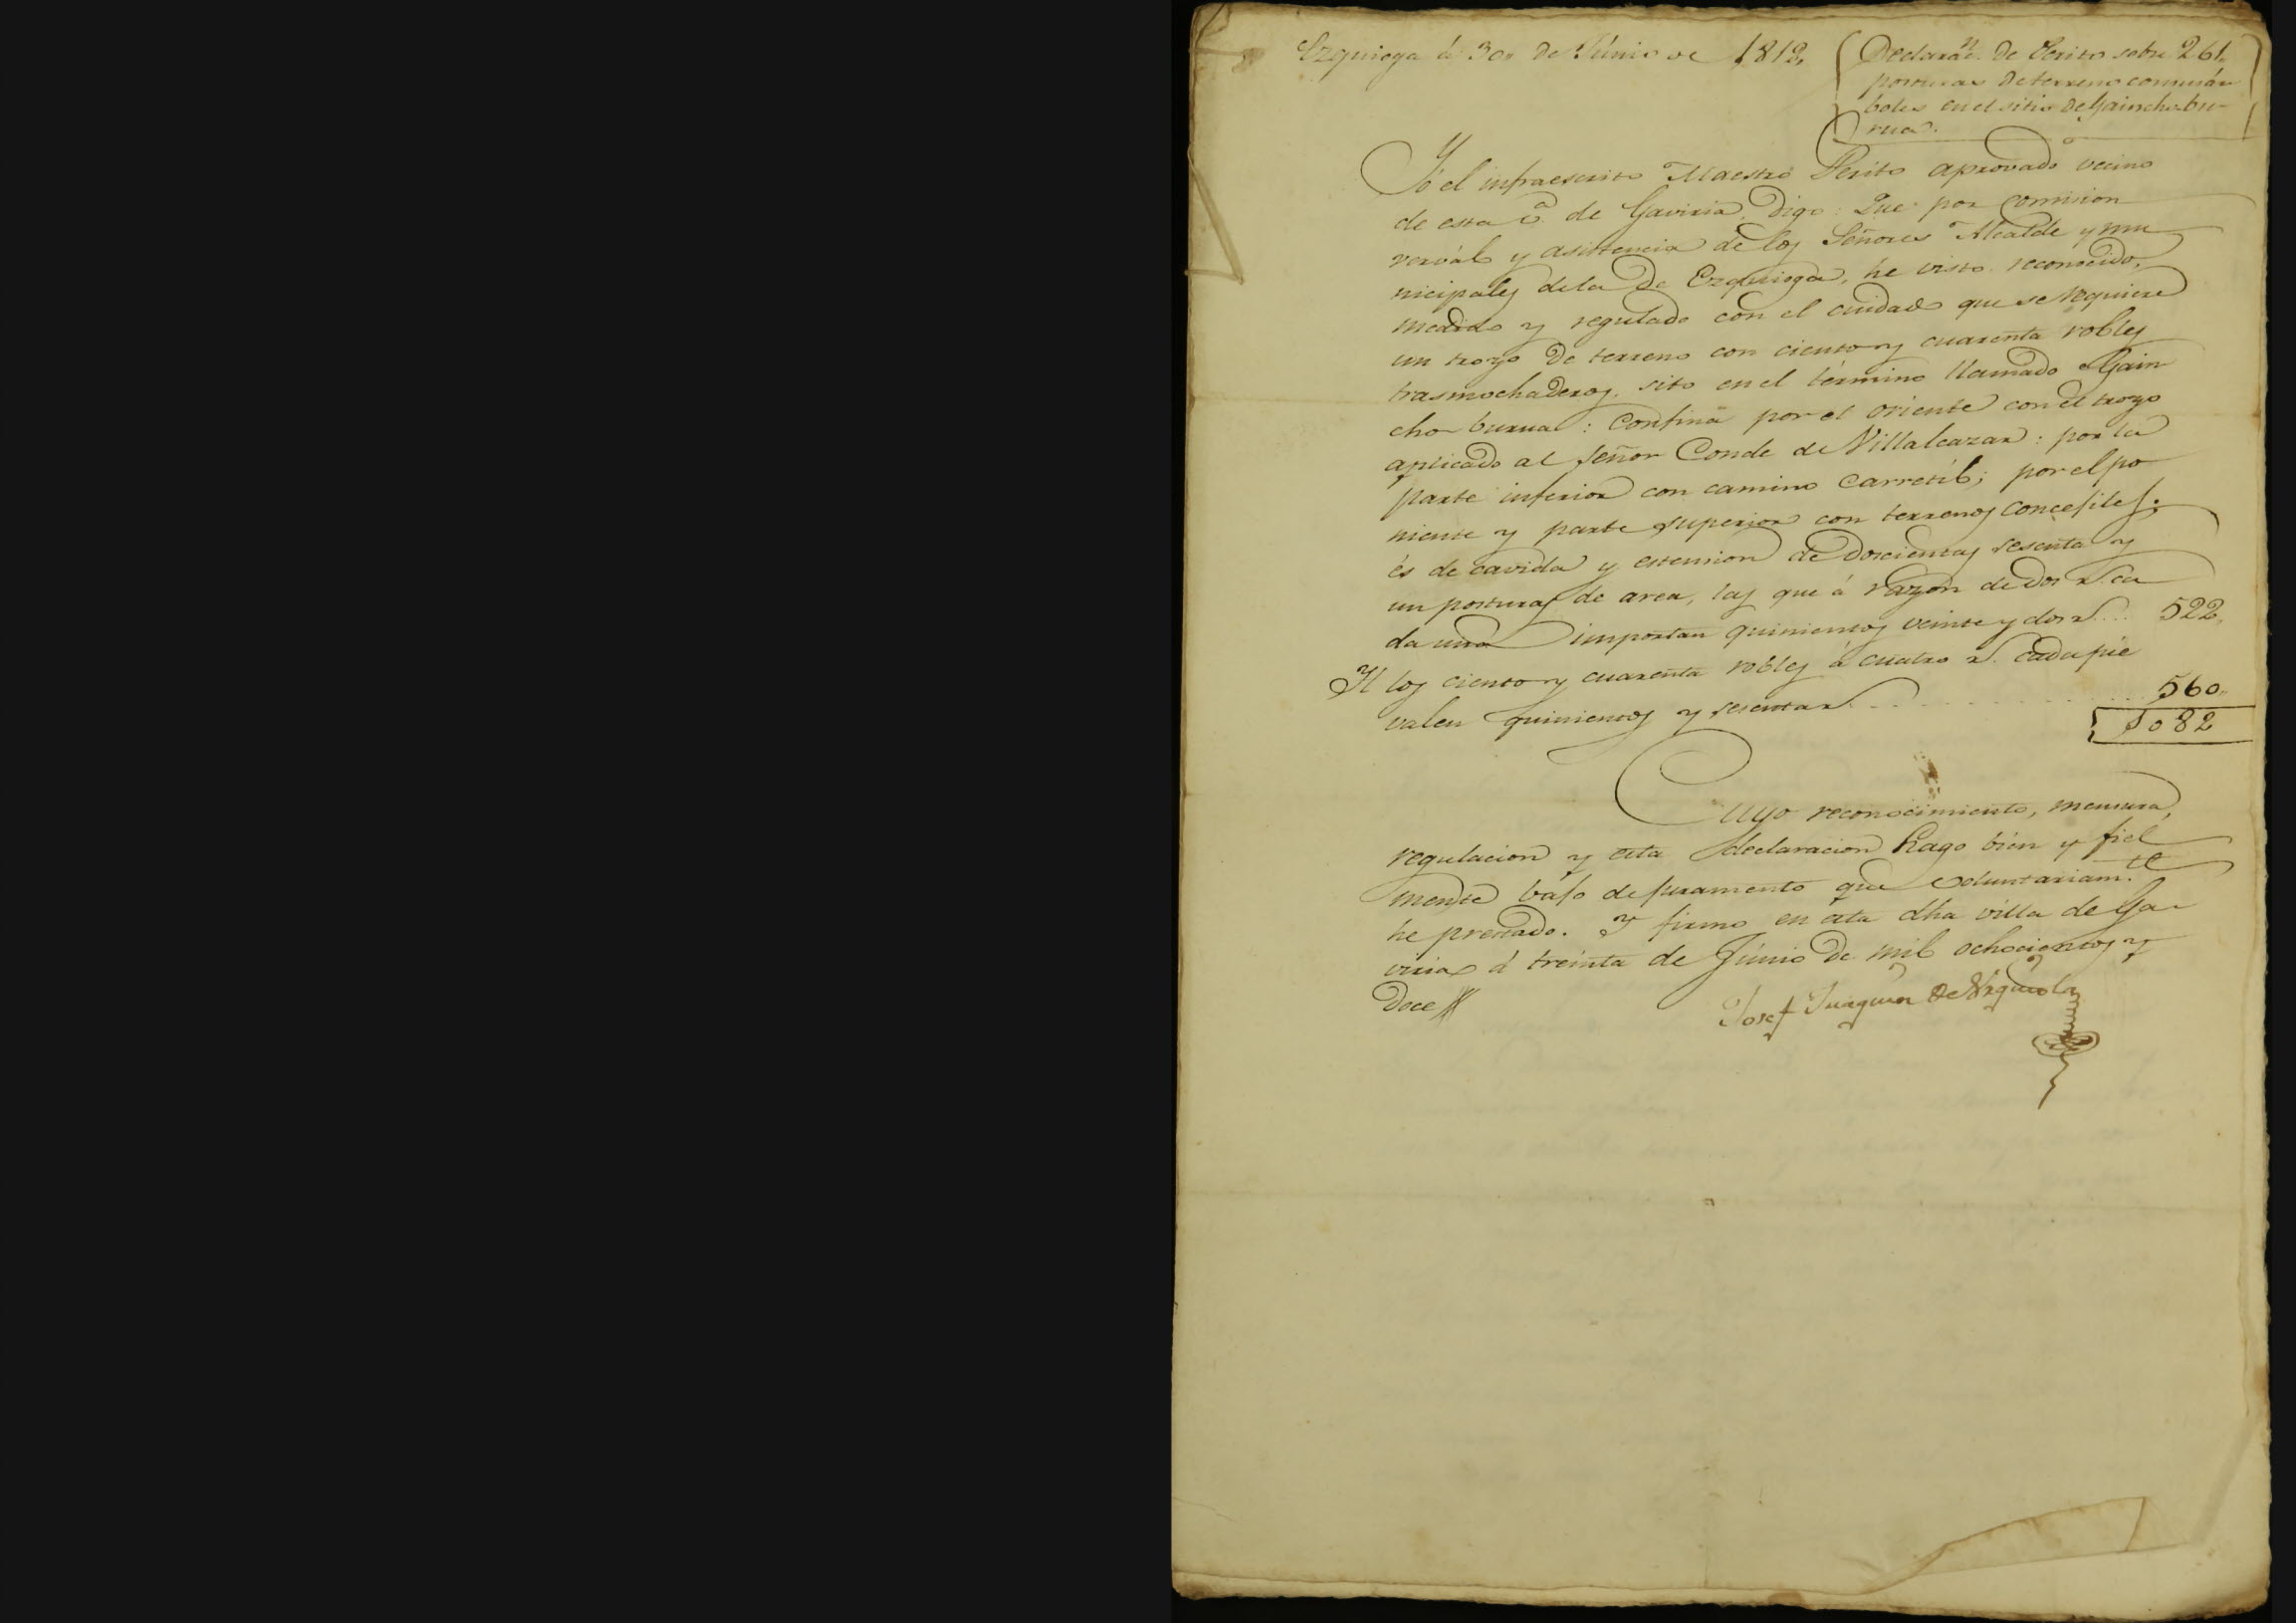 Ezquioga á 30,, de Júnio de 1812,,
Declarac.n De Perito sobre 261,,
posturas de terreno con su ár
boles en el sitio de Gaincho bu-
rua.
Yó el infraescrito Maestro Perito aprovado vecino
de esta v.a de Gaviria, Digo: Que por comision
verbál y asistencia de los Señores Alcalde y mu
nicipales dela De Ezquioga, he visto reconocido,
medido y regulado con el cuidado que se requiere
un trozo De terreno con ciento y cuarenta robles
trasmochaderos, sito en el término llamado Gain
cho burua: Confina por el oriente con el trozo
aplicado al señor Conde de Villalcazar: por la
parte inferior con camino Carretíl; por el po
niente y parte superior con terrenos concejiles;
és de cavida y estension de Doscientas sesenta y
un posturas de area, las que á razon de Dos r.s ca
da una importan quinientos veinte y dos r.s .... 522,,
Yt los ciento y cuarenta robles á cuatro r.s cada pie
valen quinientos y sesenta r.s ............ 560,,
1082
Cuyo reconocimiento, mensura,
regulacion y esta declaracion hago bien y fiel
mente bajo de juramento que voluntariam.te
he prestado. Y firmo en esta dha villa de Ga-
viria á treinta de Júnio De mil ochocientos y
Doce
Josef Juaquin de Urquiola